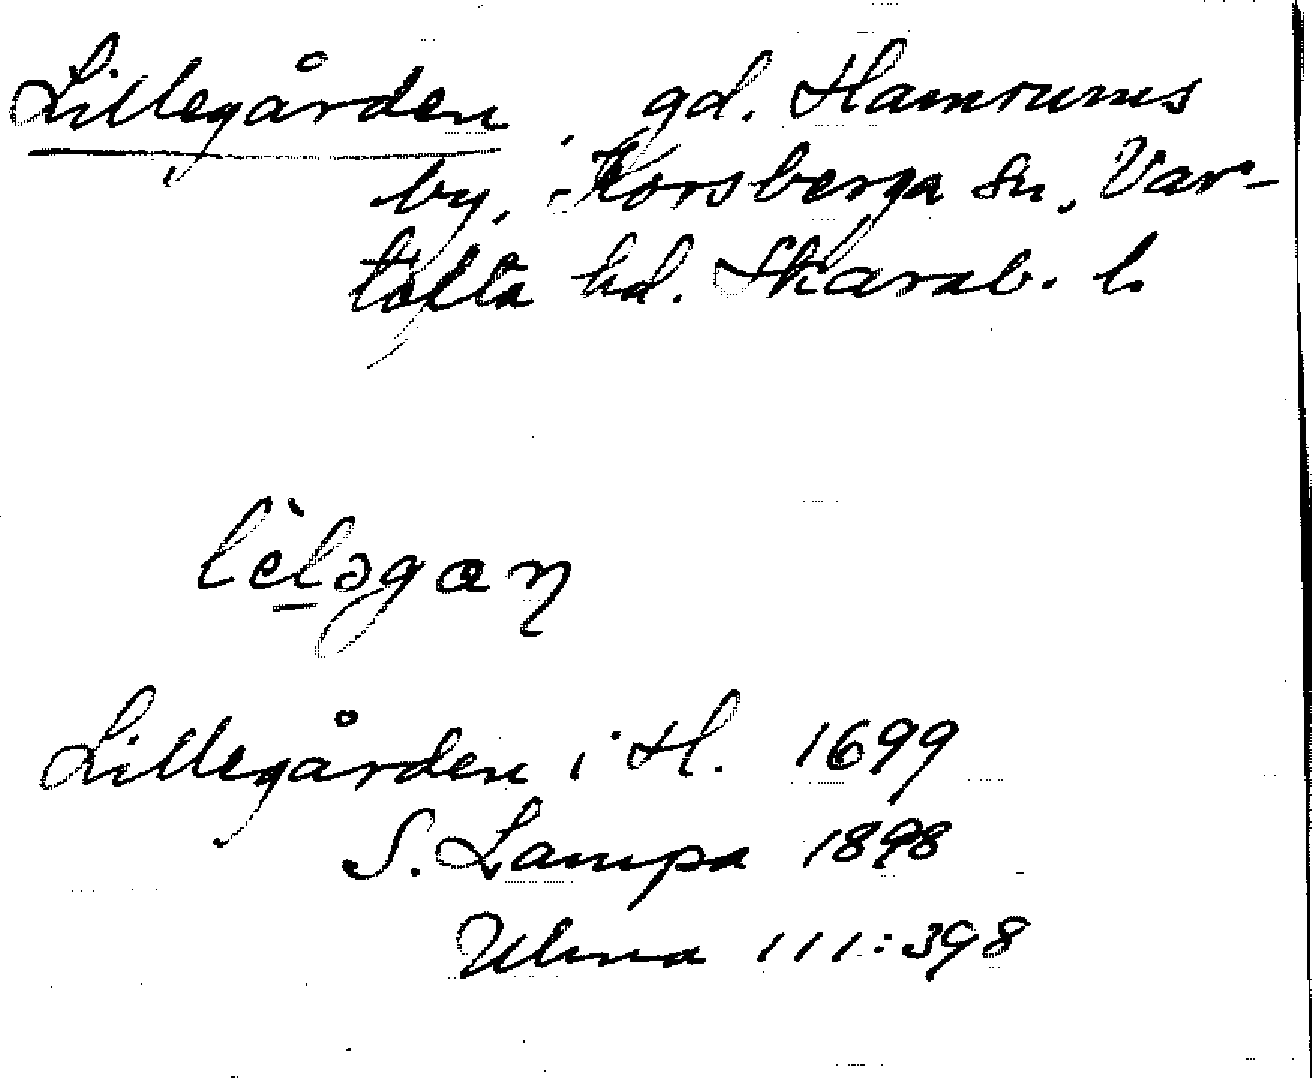 Lillegården, gd. Hamrums
by, Korsberga sn, Var-
tofta hd. Skarab. l.
lèləgan
Lillegården i H. 1699
S. Lampa 1898
Ulma 111:398